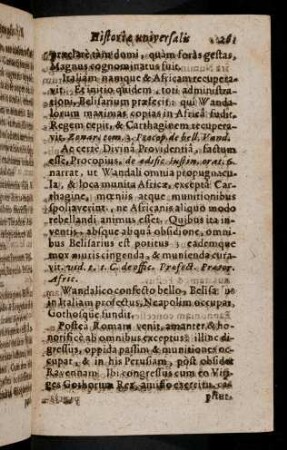 Historiæ universalis 261
præclarè tam domi, quàm foràs gestas,
Magnus cognominatus fuit.
Italiam namque & Africam recupera-
vit. Et initio quidem, toti administra-
tioni, Belisarium præfecit: qui Wanda-
lorum maximas copias in Africâ fudit,
Regem cepit, & Carthaginem recupera-
vit. Zonar. tom. 3. Procop. de bell. Vand.
Ac certè Divinâ Providentiâ, factum
esse, Procopius, de ædific. Justin. orat. 6.
narrat, ut Wandali omnia propugnacu-
la, & loca munita Africæ, exceptâ Car-
thagine, mœniis atque munitionibus
spoliaverint, ne Africanis aliquo modo
rebellandi animus esset. Quibus ita in-
ventis, absque aliquâ obsidione, omni-
bus Belisarius est potitus; eademque
mox muris cingenda, & munienda cura-
vit. vid. l. 1. C. de offic. Præfect. Prætor.
Afric.
Wandalico confecto bello, Belisarius
in Italiam profectus, Neapolim occupat,
Gothosque fundit.
Postea Romam venit, amanter & ho-
norificè ab omnibus exceptus: illinc di-
gressus, oppida passim & munitiones oc-
cupat, & in his Perusiam, post obsidet
Ravennam. Ibi congressus cum eo Viti-
ges Gothorum Rex, amisso exercitu, ca-
ptus,